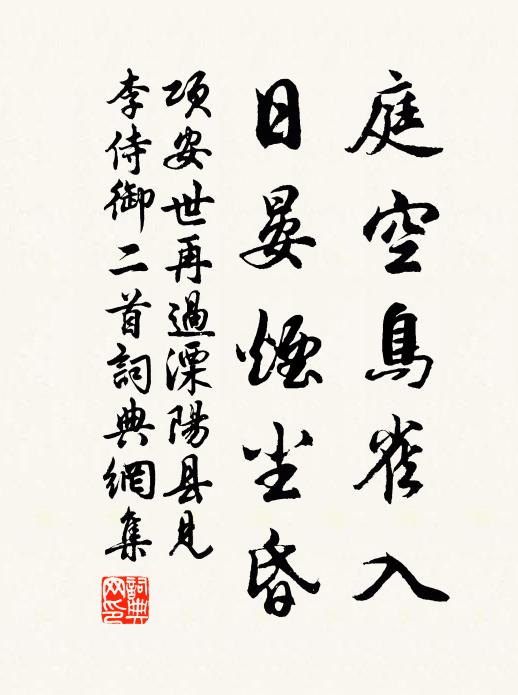 庭空鳥雀入
日晏煙尘昏
項安世再過溧陽县見
李侍御二首詞典網集
詞典网印